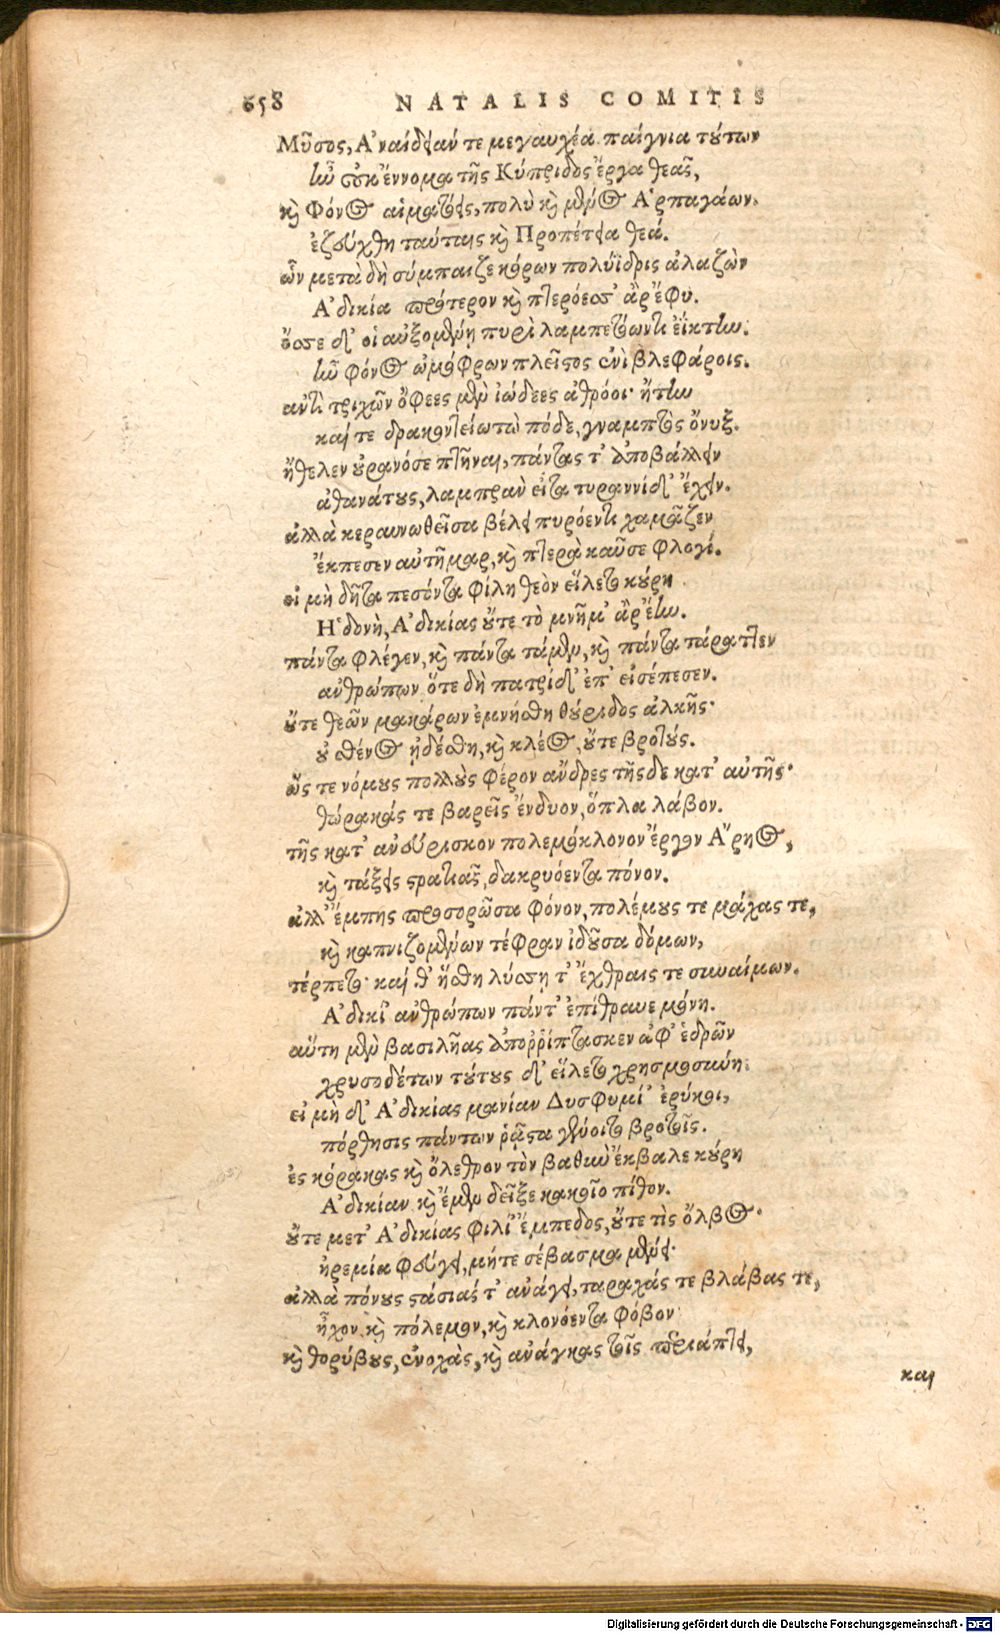 658 NATALIS COMITIS
Μῦσος, Α᾿ναίδειάν τε μεγαυχέα παίγνια τούτων
ἦν οὐκ ἔννομα τῆς Κύπριδος ἔργα θεᾶς,
καὶ Φόνος αἱματόεις, πολὺ καὶ μένος Α῾ρπαγάων.
ἐζεύχθη ταύταις καὶ Προπέτεια θεά.
ὧν μετὰ δὴ σύμπαιζε κόρων πολύϊδρις ἀλαζὼν
Α᾿δικία πρότερον καὶ πτερόεσσ᾿ ἂρ ἔφυ.
ὄσσε δ᾿ οἱ αὐξομένῃ πυρὶ λαμπετόωντι ἐΐκτην·
ἦν φόνος ὠμόφρων πλεῖστος ἐνὶ βλεφάροις.
ἀντὶ τριχῶν ὄφεες μὲν ἰώδεες ἀθρόοι· ἤτην
καί τε δρακοντείω τὼ πόδε, γναμπτὸς ὄνυξ.
ἤθελεν οὐρανόσε πτῆναι, πάντας τ᾿ ἀποβάλλειν
ἀθανάτους, λαμπρὰν εἶτα τυραννίδ᾿ ἔχειν.
ἀλλὰ κεραυνωθεῖσα βέλει πυρόεντι χαμᾶζεν
ἔκπεσεν αὐτῆμαρ, καὶ πτερὰ καῦσε φλογί.
εἰ μὴ δῆτα πεσόντα φίλη θεὸν εἵλετο κούρη
Η῾δονὴ, Α᾿δικίας οὔτε τὸ μνῆμ᾿ ἂρ ἔην.
πάντα φλέγεν, καὶ πάντα τάμεν, καὶ πάντα τάραττεν
ἀνθρώπων ὅτε δὴ πατρίδ᾿ ἐπ᾿ εἰσέπεσεν.
οὔτε θεῶν μακάρων ἐμνήσθη θούριδος ἀλκῆς·
οὐ σθένος ᾐδέσθη, καὶ κλέος, οὔτε βροτούς.
ὥς τε νόμους πολλοὺς φέρον ἄνδρες τῆςδε κατ᾿ αὐτῆς·
θώρακάς τε βαρεῖς ἔνδυον, ὅπλα λάβον.
τῆς κατ᾿ ἀνεύρισκον πολεμόκλονον ἔργον Α῎ρηος,
καὶ τάξεις στρατιᾶς, δακρυόεντα πόνον.
ἀλλ᾿ ἔμπης προσορῶσα φόνον, πολέμους τε μάχας τε,
καὶ καπνιζομένων τέφραν ἰδοῦσα δόμων,
τέρπετο· καί θ᾿ ἥσθη λύσσῃ τ᾿ ἔχθραις τε συναίμων.
Α᾿δικί᾿ ἀνθρώπων πάντ᾿ ἐπίθραυε μόνη.
αὕτη μὲν βασιλῆας ἀποῤῥίπτασκεν ἀφ᾿ ἑδρῶν
χρυσοδέτων τούτους δ᾿ εἵλετο χρησμοσύνη·
εἰ μὴ δ᾿ Α᾿δικίας μανίαν Δυσφυμί᾿ ἐρύκοι,
πόρθησις πάντων ῥᾷστα γένοιτο βροτοῖς.
ἐς κόρακας καὶ ὄλεθρον τὸν βαθὺν ἔκβαλε κούρη
Α᾿δικίαν καὶ ἔμεν δεῖξε κακοῖο πίθον.
οὔτε μετ᾿ Α᾿δικίας φιλί᾿ ἔμπεδος, οὔτε τὶς ὄλβος·
ἠρεμία φεύγει, μήτε σέβασμα μένει·
ἀλλὰ πόνους στάσιάς τ᾿ ἀνάγει, ταραχάς τε βλάβας τε,
ἦχον καὶ πόλεμον, καὶ κλονόεντα φόβον·
καὶ θορύβους, ἐνοχὰς, καὶ ἀνάγκας τοῖς περιάπτει,
και
Digitalisierung gefördert durch die Deutsche Forschungsgemeinschaft - DFG